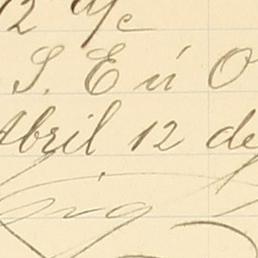 12 a/c
S. E ú O
Abril 12 de